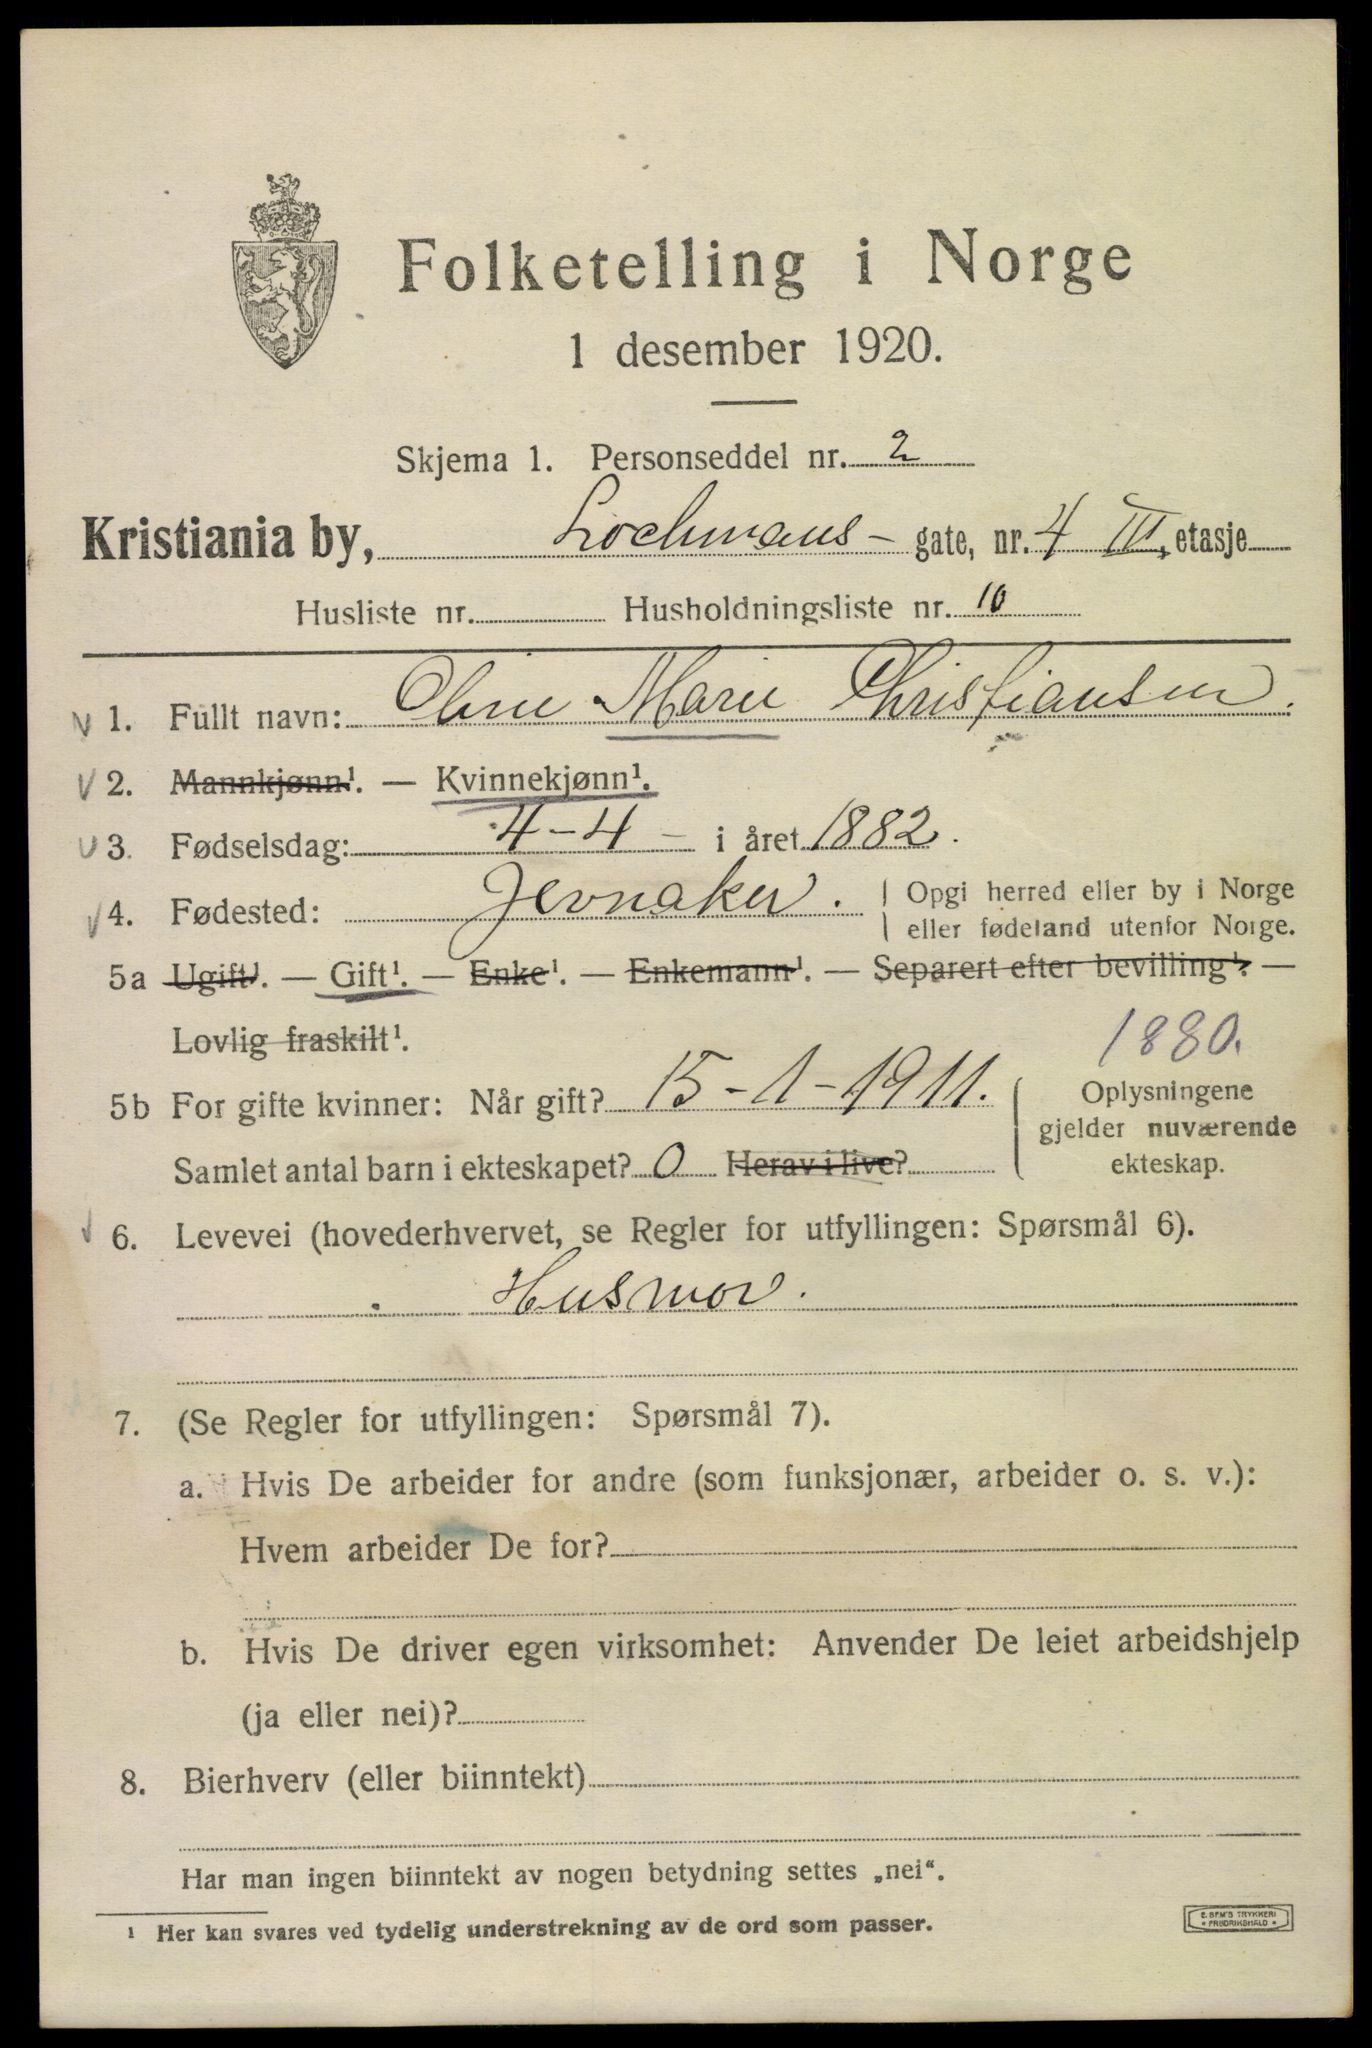 Folketelling i Norge
1 desember 1920.
Skjema 1. Personseddel nr. 2
Kristiania by, Lochmans - gate, nr. 4 III, etasje
Husliste nr. Husholdningsliste nr. 10
1. Fullt navn: Marie Christiansen.
2. Mannkjønn¹. — Kvinnekjønn¹.
3. Fødselsdag: 4-4 - i året 1882.
4. Fødested: Jevnaker. Opgi herred eller by i Norge
eller fødeland utenfor Norge.
5a Ugift¹. — Gift¹. — Enke¹. — Enkemann¹. — Separert efter bevilling¹. —
Lovlig fraskilt¹.
1880.
5b For gifte kvinner: Når gift? 15-1-1911.
Samlet antal barn i ekteskapet? 0 Herav i live?
Oplysningene
gjelder nuværende
ekteskap.
6. Levevei (hovederhvervet, se Regler for utfyllingen: Spørsmål 6).
Husmor.
7. (Se Regler for utfyllingen: Spørsmål 7).
a. Hvis De arbeider for andre (som funksjonær, arbeider o. s. v.):
Hvem arbeider De for?
b. Hvis De driver egen virksomhet: Anvender De leiet arbeidshjelp
(ja eller nei)?
8. Bierhverv (eller biinntekt)
Har man ingen biinntekt av nogen betydning settes „nei“.
¹ Her kan svares ved tydelig understrekning av de ord som passer.
E. SEM'S TRYKKERI
* FREDRIKSHALD *